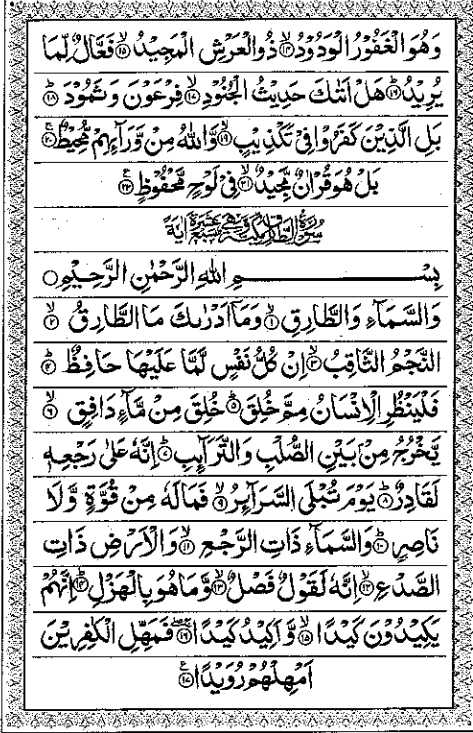 وَهُوَ الْغَفُوْرُ الْوَدُوْدُ ۙ﴿۱۴﴾ ذُو الْعَرْشِ الْمَجِيْدُ ۙ﴿۱۵﴾ فَعَّالٌ لِّمَا
يُرِيْدُ ؕ﴿۱۶﴾ هَلْ اَتٰىكَ حَدِيْثُ الْجُنُوْدِ ۙ﴿۱۷﴾ فِرْعَوْنَ وَ ثَمُوْدَ ؕ﴿۱۸﴾
بَلِ الَّذِيْنَ كَفَرُوْا فِيْ تَكْذِيْبٍ ۙ﴿۱۹﴾ وَّ اللّٰهُ مِنْ وَّرَآىِٕهِمْ مُّحِيْطٌ ۚ﴿۲۰﴾
بَلْ هُوَ قُرْاٰنٌ مَّجِيْدٌ ۙ﴿۲۱﴾ فِيْ لَوْحٍ مَّحْفُوْظٍ ﴿۲۲﴾
سُوْرَةُ الطَّارِقِ مَكِّيَّةٌ وَّهِيَ سَبْعَ عَشْرَةَ اٰيَةً
بِسْمِ اللّٰهِ الرَّحْمٰنِ الرَّحِيْمِ ○
وَ السَّمَآءِ وَ الطَّارِقِ ۙ﴿۱﴾ وَ مَاۤ اَدْرٰىكَ مَا الطَّارِقُ ۙ﴿۲﴾
النَّجْمُ الثَّاقِبُ ۙ﴿۳﴾ اِنْ كُلُّ نَفْسٍ لَّمَّا عَلَيْهَا حَافِظٌ ؕ﴿۴﴾
فَلْيَنْظُرِ الْاِنْسَانُ مِمَّ خُلِقَ ؕ﴿۵﴾ خُلِقَ مِنْ مَّآءٍ دَافِقٍ ۙ﴿۶﴾
يَّخْرُجُ مِنْۢ بَيْنِ الصُّلْبِ وَ التَّرَآىِٕبِ ؕ﴿۷﴾ اِنَّهٗ عَلٰى رَجْعِهٖ
لَقَادِرٌ ؕ﴿۸﴾ يَوْمَ تُبْلَى السَّرَآىِٕرُ ۙ﴿۹﴾ فَمَا لَهٗ مِنْ قُوَّةٍ وَّ لَا
نَاصِرٍ ؕ﴿۱۰﴾ وَ السَّمَآءِ ذَاتِ الرَّجْعِ ۙ﴿۱۱﴾ وَ الْاَرْضِ ذَاتِ
الصَّدْعِ ۙ﴿۱۲﴾ اِنَّهٗ لَقَوْلٌ فَصْلٌ ۙ﴿۱۳﴾ وَّ مَا هُوَ بِالْهَزْلِ ؕ﴿۱۴﴾ اِنَّهُمْ
يَكِيْدُوْنَ كَيْدًا ۙ﴿۱۵﴾ وَّ اَكِيْدُ كَيْدًا ۚ﴿۱۶﴾ فَمَهِّلِ الْكٰفِرِيْنَ
اَمْهِلْهُمْ رُوَيْدًا ﴿۱۷﴾